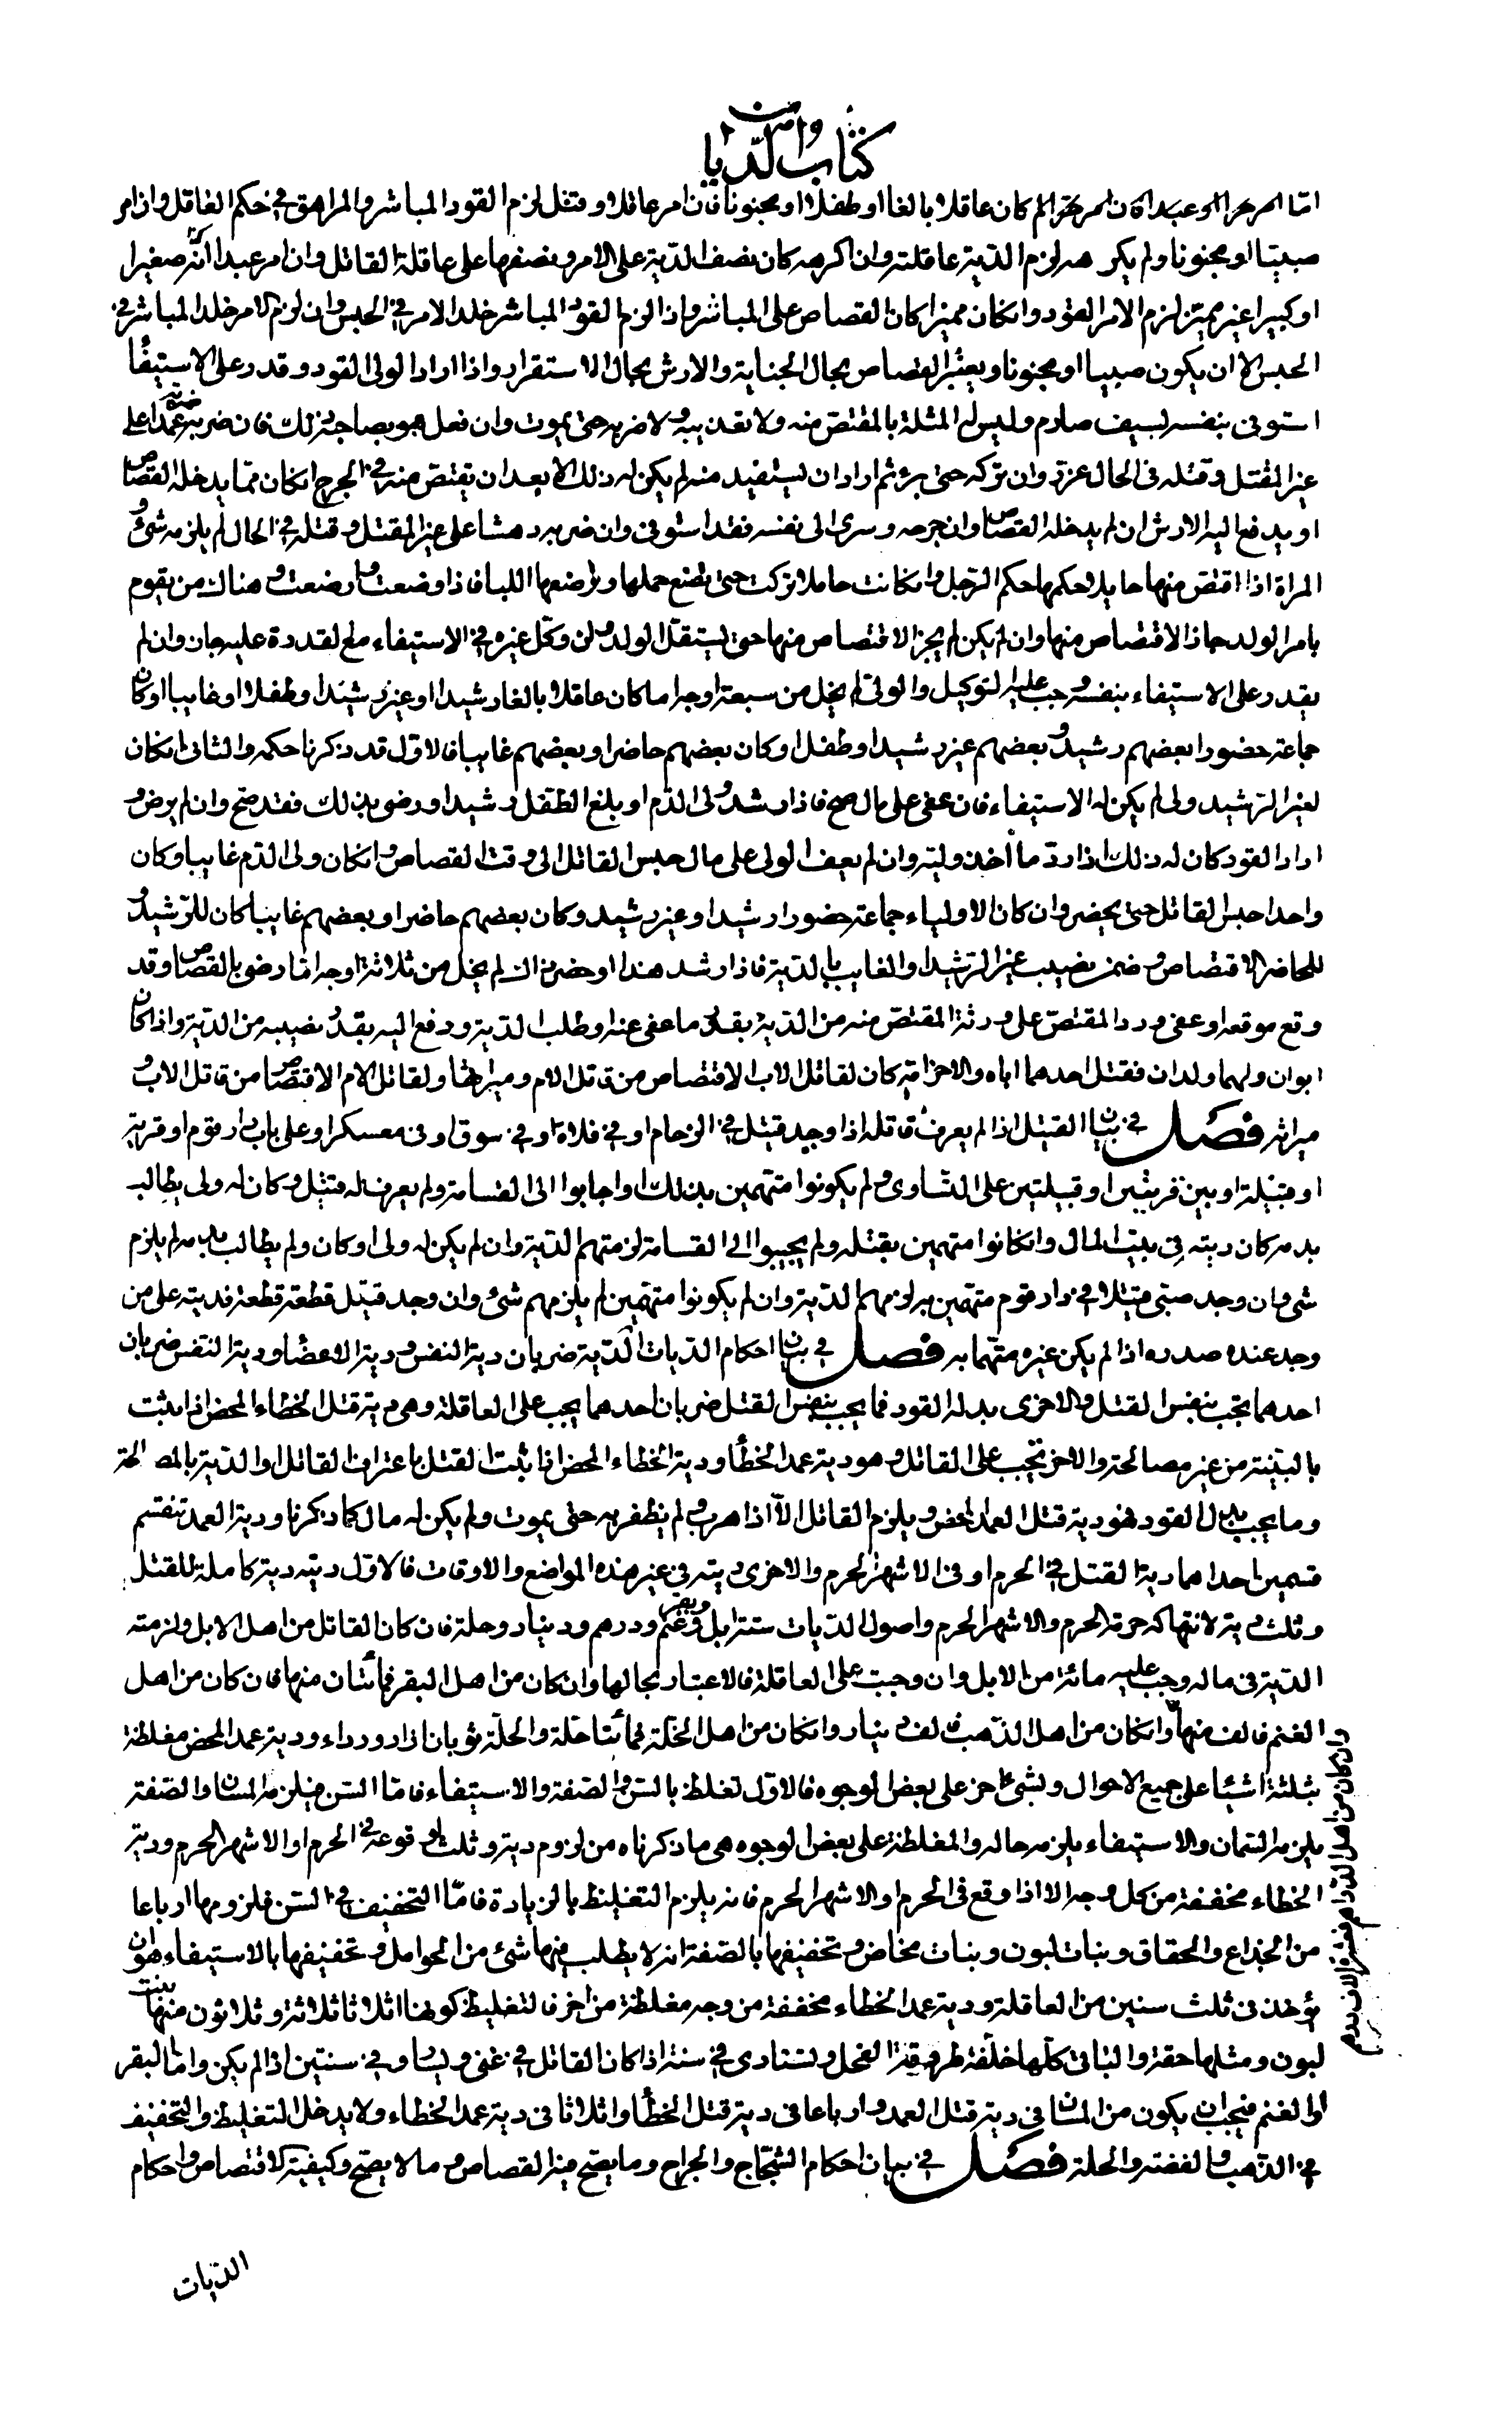 كتاب الديات
اما امر حرا او عبدا فان امر حرا لم كان عاقلا بالغا او طفلا او مجنونا فان امر عاقلا وقتل لزم القود المباشر والمراهق فى حكم العاقل وان امر
صبيا او مجنونا ولم يكرهه لزم الدية عاقلته وان اكرهه كان نصف الدية على الامر ونصفها على عاقلة القاتل وان امر عبدا له صغيرا
او كبيرا غير مميز لزم الامر القود وان كان مميزا كان القصاص على المباشر واذا لزم القود المباشر خلد الامر فى الحبس وان لزم الامر خلد المباشر فى
الحبس الا ان يكون صبيا او مجنونا ويعتبر القصاص بحال الجناية والارش بحال الاستقرار واذا اراد الولى القود وقدر على الاستيفا
استوفى بنفسه بسيف صارم وليس له المثلة بالمقتص منه ولا تعذيبه ولا ضربه حتى يموت وان فعل هو بصاحبه ذلك فان ضربه ضربة عمدا على
غير المقتل وقتله فى الحال عزر وان تركه حتى برئ ثم اراد ان يستقيد منه لم يكن له ذلك الا بعد ان يقتص منه فى الجرح ان كان مما يدخله القصاص
او يدفع اليه الارش ان لم يدخله القصاص وان جرحه وسرى الى نفسه فقد استوفى وان ضربه دهشا على غير المقتل وقتله فى الحال لم يلزمه شئ و
المراة اذا اقتص منها حايلا حكمها حكم الرجل وان كانت حاملا تركت حتى تضع حملها وترضعها اللبا فاذا وضعت وارضعت وهناك من يقوم
بامر الولد جاز الاقتصاص منها وان لم يكن لم يجز الاقتصاص منها حتى يستقل الولد وان وكل غيره فى الاستيفاء مع القدرة عليه جاز وان لم
يقدر على الاستيفاء بنفسه وجب عليه التوكيل والولى لم يخل من سبعة اوجه اما كان عاقلا بالغا رشيدا او غير رشيد او طفلا او غايبا او كان
جماعة حضورا بعضهم رشيد و بعضهم غير رشيد او طفل او كان بعضهم حاضرا وبعضهم غايبا فالاول قد ذكرنا حكمه والثانى ان كان
لغير الرشيد ولى لم يكن له الاستيفاء فان عفى على مال صح فاذا رشد ولى الدم او بلغ الطفل رشيدا ورضى بذلك فقد صح وان لم يرض و
اراد القود كان له ذلك اذا رد ما اخذ وليه وان لم يعف الولى على مال حبس القاتل الى وقت القصاص وان كان ولى الدم غايبا وكان
واحدا حبس القاتل حتى يحضر وان كان الاولياء جماعة حضورا رشيدا وغير رشيد وكان بعضهم حاضرا وبعضهم غايبا كان للرشيد و
للحاضر الاقتصاص وضمن نصيب غير الرشيد والغايب بالدية فاذا رشد هذا او حضر ذاك لم يخل من ثلاثة اوجه اما رضى بالقصاص وقد
وقع موقعه او عفى ورد المقتص على ورثة المقتص منه من الدية بقدر ما عفى عنه او طلب الدية ودفع اليه بقدر نصيبه من الدية واذا كان
ابوان ولهما ولدان فقتل احدهما اباه والاخر امه كان لقاتل الاب الاقتصاص من قاتل الام وميراثها ولقاتل الام الاقتصاص من قاتل الاب و
ميراثه فصل فى بيان القتيل اذا لم يعرف قاتله اذا وجد قتيل فى الزحام او فى فلاة او فى سوق او فى معسكر او على باب دار قوم او قرية
او قبيلة او بين قريتين او قبيلتين على التساوى ولم يكونوا متهمين بذلك او اجابوا الى القسامة ولم يعرف له قتيل وكان له ولى يطالب
بدمه كان ديته فى بيت المال وان كانوا متهمين بقتله ولم يجيبوا الى القسامة لزمتهم الدية وان لم يكن له ولى او كان ولم يطالب بدمه لم يلزم
شئ وان وجد صبى قتيلا فى دار قوم متهمين به لزمهم الدية وان لم يكونوا متهمين لم يلزمهم شئ وان وجد قتيل قطعة قطعة فديته على من
وجد عنده صدره اذا لم يكن غيره متهما به فصل فى بيان احكام الديات الدية ضربان دية النفس ودية الاعضا ودية النفس ضربان
احدهما يجب بنفس القتل والاخرى بدله القود فما يجب بنفس القتل ضربان احدهما يجب على العاقلة وهى دية قتل الخطاء المحض اذا ثبت
بالبينة من غير مصالحة والاخر تجب على القاتل وهو دية عمد الخطأ ودية الخطاء المحض اذا ثبت القتل باعتراف القاتل او الدية بالمصالحة
وما يجب بدل القود فهو دية قتل العمد المحض ويلزم القاتل الا اذا هرب ولم يظفر به حتى يموت ولم يكن له مال كما ذكرنا ودية العمد تنقسم
قسمين احداهما دية القتل فى الحرم او فى الاشهر الحرم والاخرى ديته فى غير هذه المواضع والاوقات فالاول ديته دية كاملة للقتل
وثلث دية لانتهاكه حرمة الحرم والاشهر الحرم واصول الديات ستة ابل وبقر وغنم ودرهم ودينار وحلة فان كان القاتل من اهل الابل ولزمته
الدية فى ماله وجب عليه مائة من الابل وان وجبت على العاقلة فالاعتبار بحالها وان كان من اهل البقر فمأتان منها فان كان من اهل
الغنم فالف منها وان كان من اهل الذهب فالف دينار وان كان من اهل الحلة فمأتا حلة والحلة ثوبان ازار ورداء ودية عمد المحض مغلظة
بثلثة اشيا على جميع الاحوال وبشئ اخر على بعض الوجوه فالاول تغلظ بالسن والصفة والاستيفاء فاما السن فيلزمه المسان والصفة
يلزمه السمان والاستيفاء يلزمه حاله والمغلظة على بعض الوجوه هى ما ذكرناه من لزوم دية وثلث لوقوعه فى الحرم او الاشهر الحرم ودية
الخطاء مخففة من كل وجه الا اذا وقع فى الحرم او الاشهر الحرم فانه يلزم التغليظ بالزيادة فاما التخفيف فى السن فلزومها ارباعا
من الجذاع والحقاق وبنات لبون وبنات مخاض وتخفيفها بالصفة انه لا يطلب فيها شئ من الحوامل وتخفيفها بالاستيفاء هو ان
يؤخذ فى ثلث سنين من العاقلة ودية عمد الخطاء مخففة من وجه مغلظة من اخر فالتغليظ كونها اثلاثا ثلاثة وثلاثون منها بنت
لبون ومثلها حقة والباقى كلها خلفة طروقة الفحل وتستادى فى سنة اذا كان القاتل فى غنى ويسار وفى سنتين اذا لم يكن واما البقر
او الغنم فيجب ان يكون من المسان فى دية قتل العمد وارباعا فى دية قتل الخطأ واثلاثا فى دية عمد الخطاء ولا يدخل التغليظ والتخفيف
فى الذهب والفضة والحلة فصل فى بيان احكام الشجاج والجراح وما يصح فيه القصاص وما لا يصح وكيفية الاقتصاص واحكام
وان كان من اهل الدراهم فعشرة الاف درهم
الديات